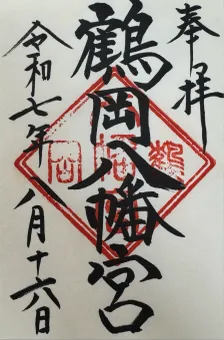 奉拝
鶴岡八幡宮
令和七年八月十六日